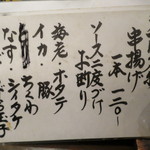 串揚げ
一本 一二〇〜
ソース二度づけ
お断り
海老・ホタテ
イカ 豚
ちくわ
なす・シイタケ
玉子